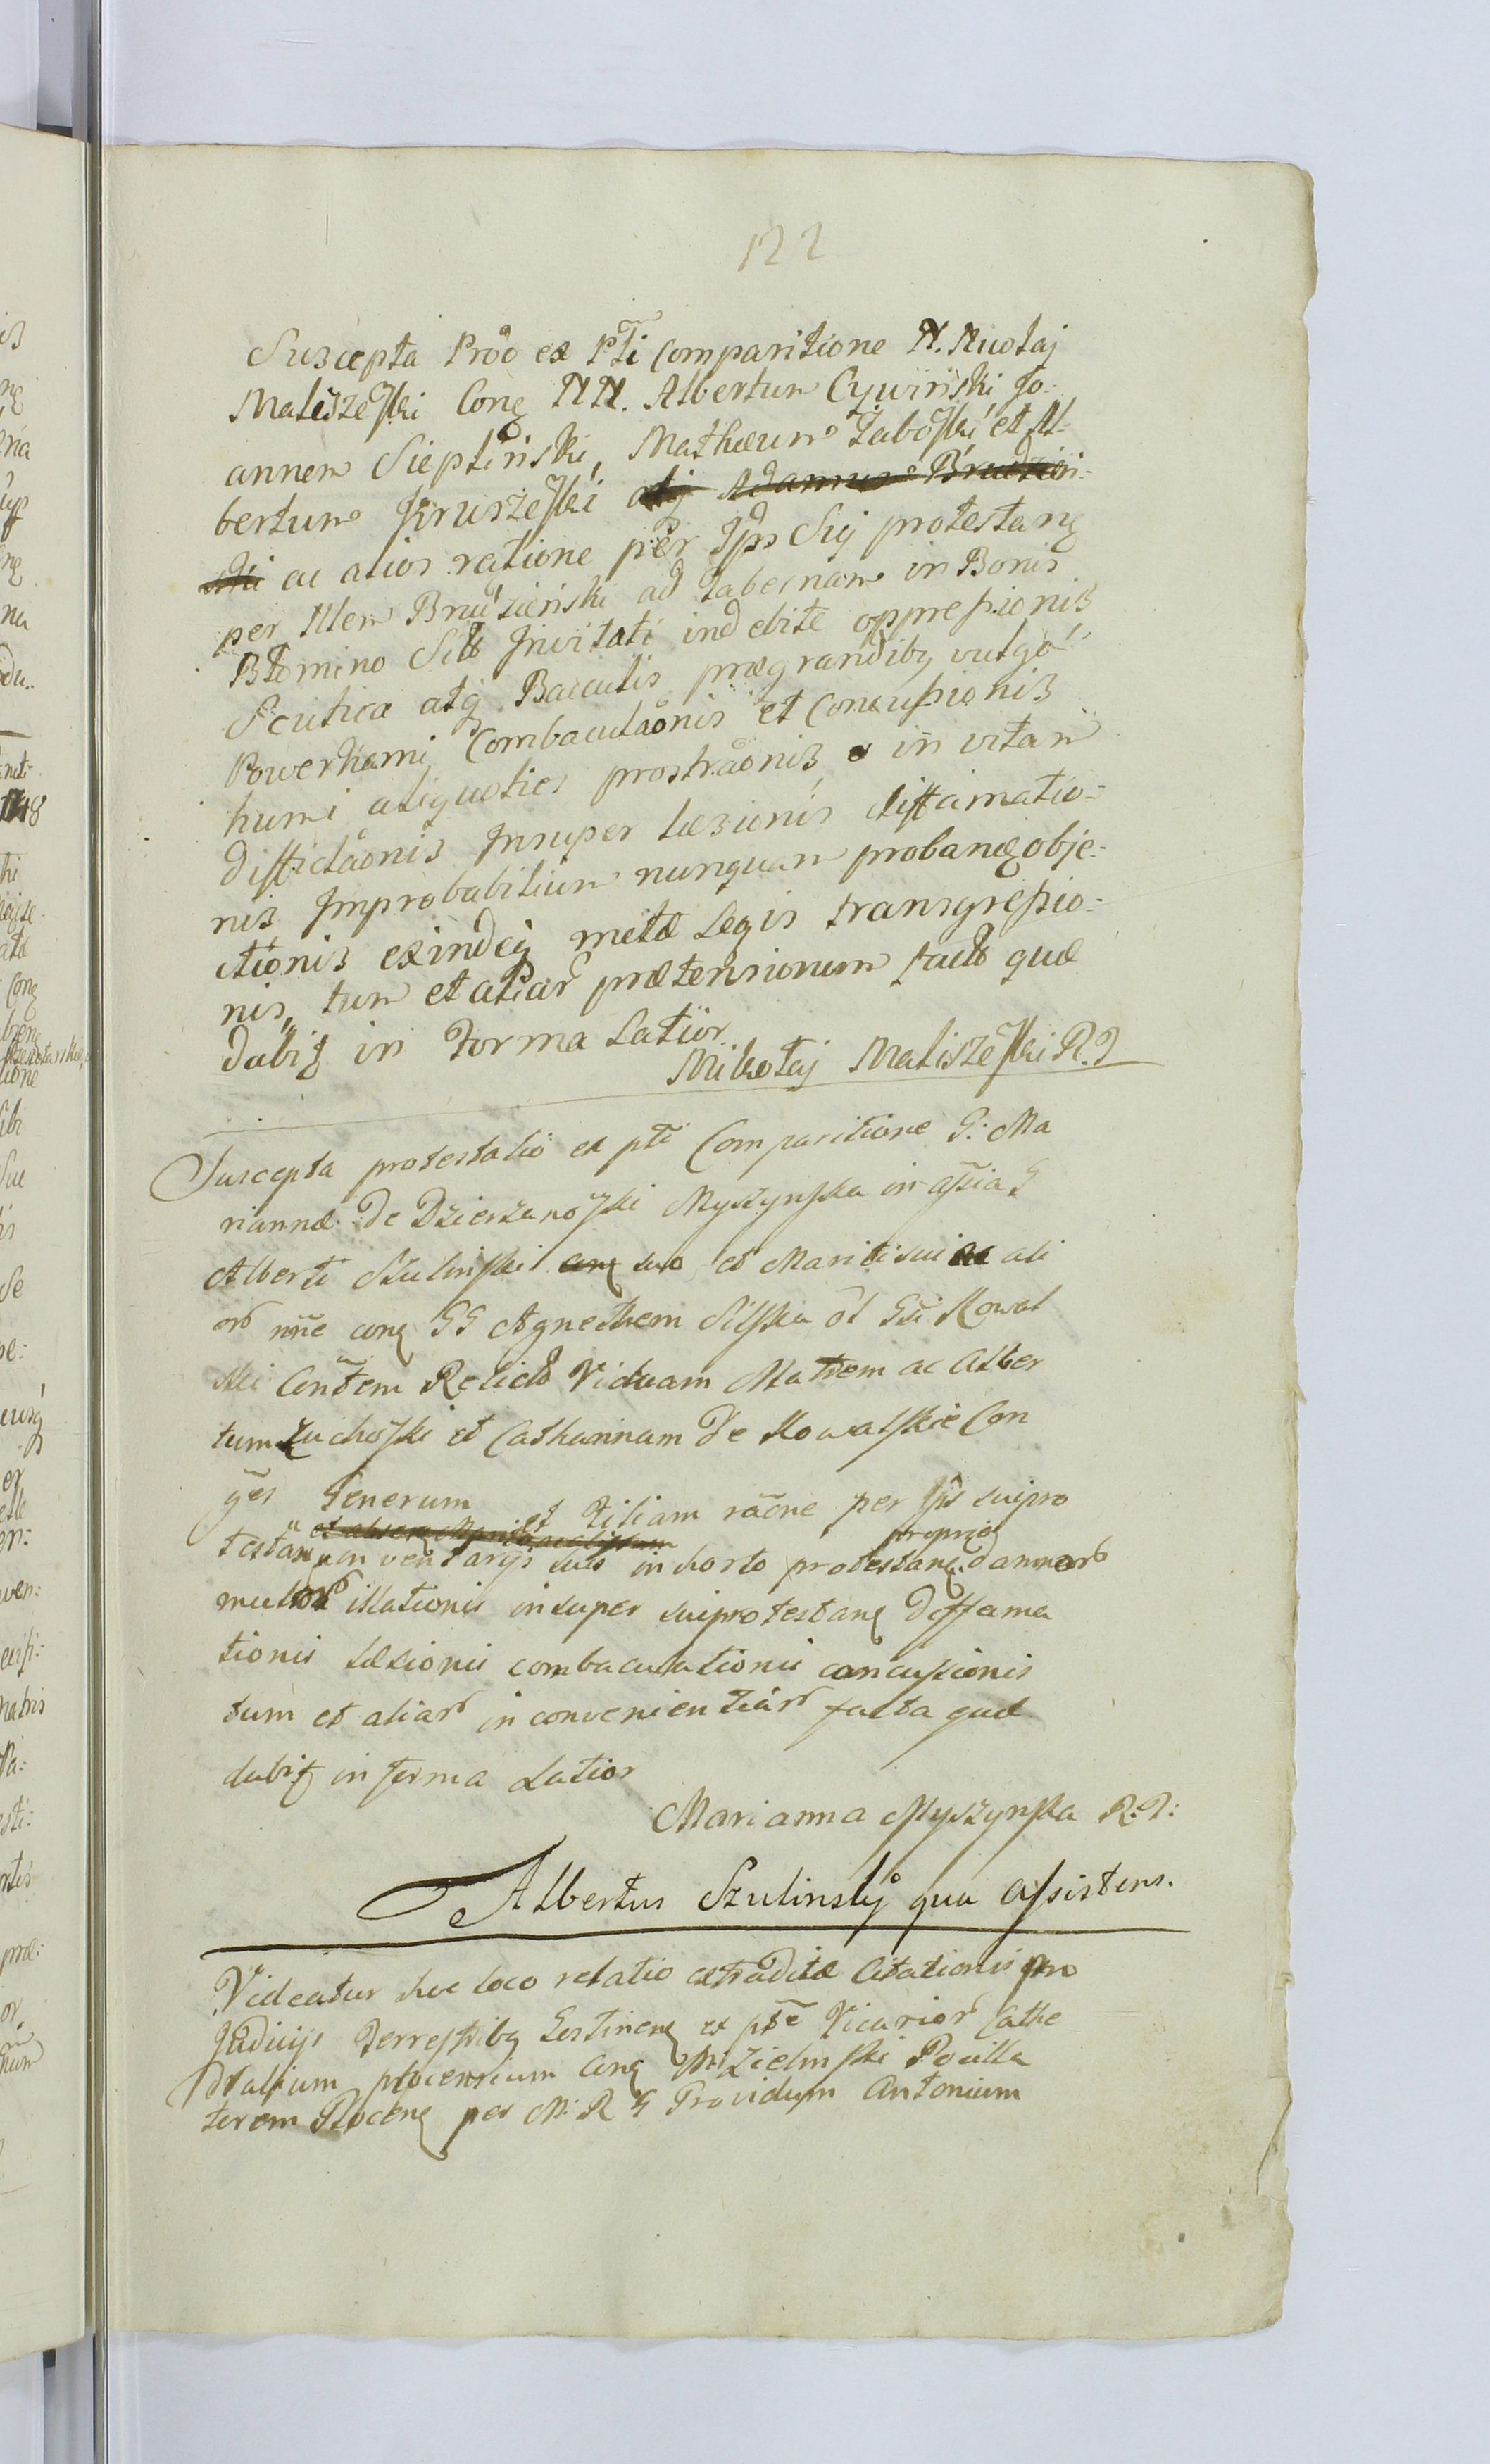 122
Suscepta Prõo ex Pti Comparitione N. Mikołaj
Maliszeſſki Conꝗ NN. Albertum Cywiński Jo-
annem Siepliński, Mathæum Żaboſſki et Al-
bertum Kruszeſſki atꝗ Adamum Brudzień-
ski ac alios ratione per Ips Sui protestanꝗ
per Illem Brudzieński ad tabernam in Bonis
Blomino Sito Invitati indebite oppreſsionis
Scutica atꝗ Baculis prægrandibꝫ vulgo
Powerkami Combaculãonis et Concuſsionis
humi aliquoties prostrãonis in vitam
diffidãonis Insuper læsionis diffamatio-
nis Improbabilium nunquam probanꝗ obje-
ctionis exindeꝗ metæ Legis transgreſsio-
nis, tum et aliar prætensionum facto quæ
dabit in Forma Latior.
Mikołaj Maliszeſſki R.P
Suscepta protestatio ex pti Comparitione G: Ma
riannæ De Dzierzanoſſki Myszynſka in aſsia G
Alberti Szulinſki conꝗ suo et Mariti sui ac ali
or nñe conꝗ GG Agnethem Silſka ol Gsi Kowal
ski Conthem Relicto Viduam Matrem ac Alber
tum Zuchoſſki et Catharinam De Kowalſkie Con
ges Generum et Filiam rãone per Ips sui pro
propriꝗ
testanꝗ in ventarijs suis in horto protestanꝗ damnor
multor illationis insuper sui protestanꝗ diffama
tionis læsionis combaculationis concuſsionis
tum et aliar in convenientiar facta quæ
dabit in forma Latior
Marianna Myszynſka R.P:
Albertus Szulinsky qua aſsistens.
Videatur hoc loco relatio extraditæ Citationis pro
Judicijs Terreſtribꝫ Gostinenꝗ ex pte Vicarior Cathe
dralium plocensium Conꝗ M Zielinſki Pocilla
torem Plocenꝗ per M: R G Providum Antonium